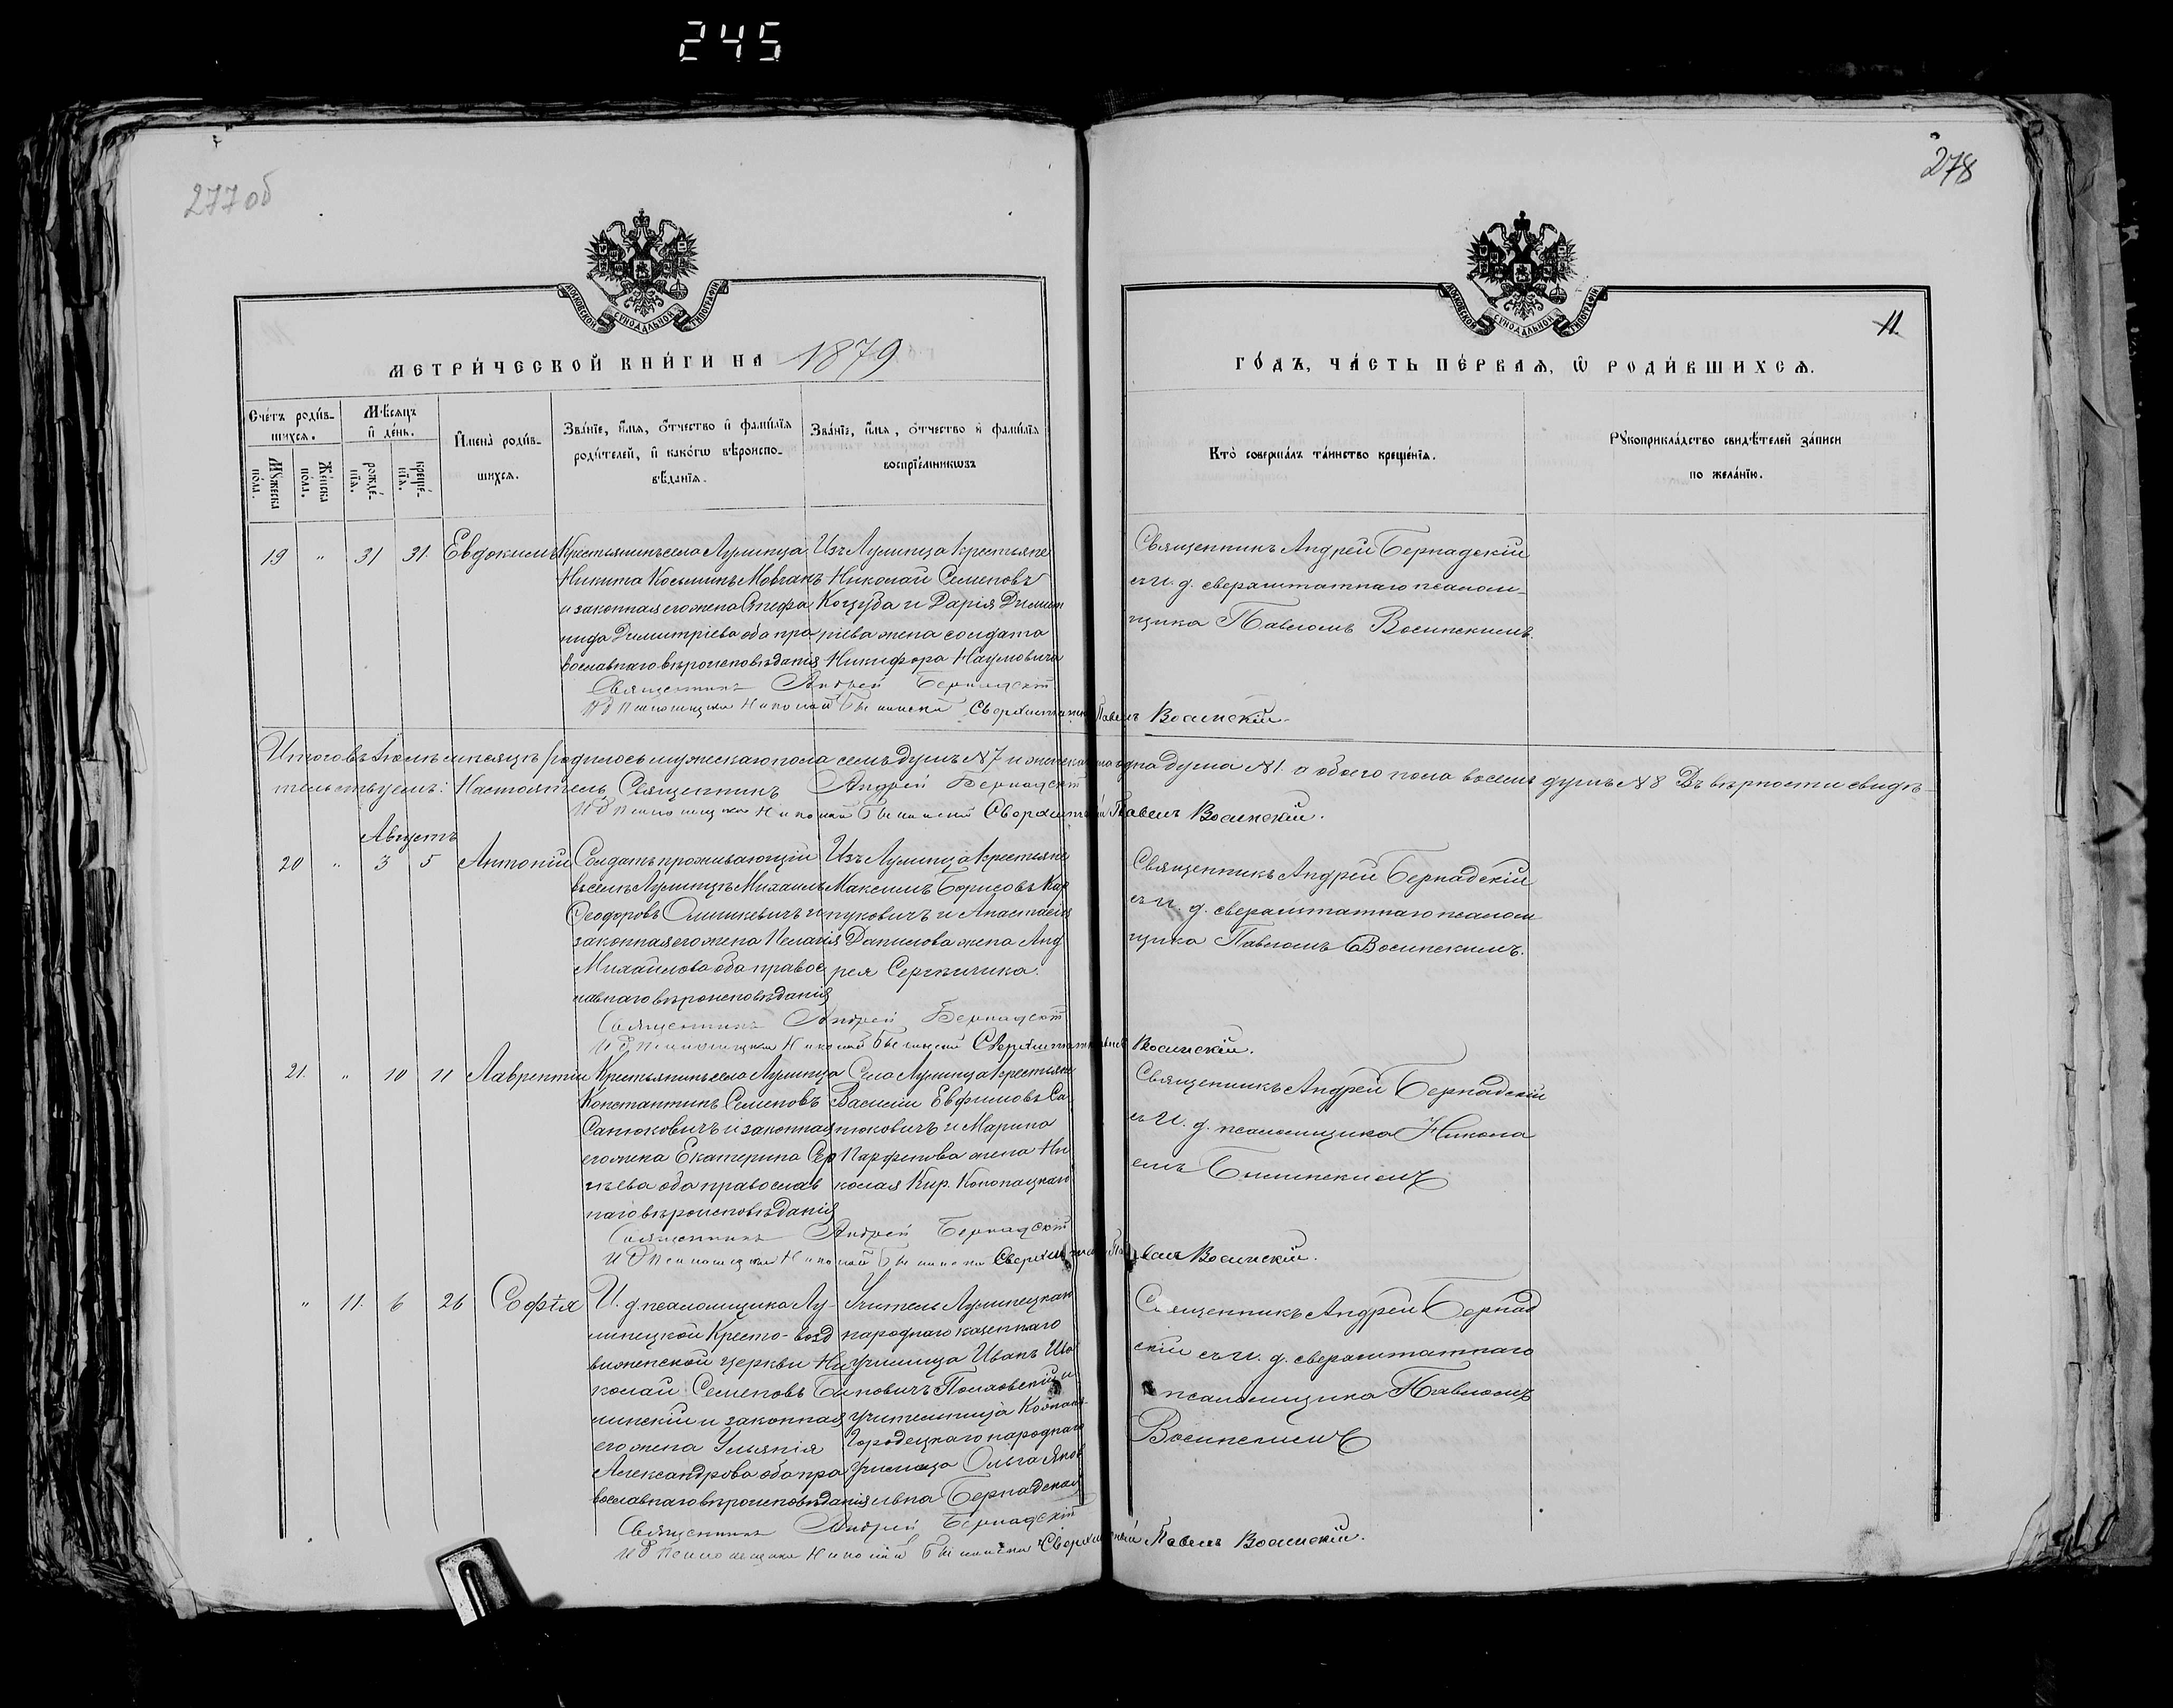 245
277 об
278
МОСКОВСКОЙ СѴНОДАЛЬНОЙ ТИПОГРАФІИ
МОСКОВСКОЙ СѴНОДАЛЬНОЙ ТИПОГРАФІИ
11.
МЕТРИ́ЧЕСКОЙ КНИ́ГИ НА 1879
ГО́ДЪ, ЧА́СТЬ ПЕ́РВАѦ, Ѡ РОДИ́ВШИХСѦ.
Сче́тъ роди́в-
шихсѧ.
Мꙋ́жеска по́ла.
Же́нска по́ла.
Мѣ́сѧцъ
и҆ де́нь.
рожде́-
нїѧ.
креще́-
нїѧ.
И҆мена̀ роди́в-
шихсѧ.
Зва́нїе, и҆́мѧ, о҆́тчество и҆ фами́лїѧ
роди́телей, и҆ како́гѡ вѣроиспо-
вѣ́данїѧ.
Зва́нїе, и҆́мѧ, о҆́тчество и҆ фами́лїѧ
воспрїе́мникѡвъ
Кто̀ соверша́лъ та́инство креще́нїѧ.
Рꙋкоприкла́дство свидѣ́телей за́писи
по жела́нїю.
19 " 31 31. Евдокимъ
Крестьянинъ села Лунинца
Никита Косьминъ Мовчанъ
и законная его жена Степа
нида Димитріева оба пра
вославнаго вѣроисповѣданія
Изъ Лунинца крестьяне
Николай Семеновъ
Коцуба и Дарія Димит
ріева жена солдата
Никифора Наумовича
Священникъ Андрей Бернадскій
съ И. д. сверхштатнаго псалом-
щика Павломъ Восинскимъ.
Священникъ Андрей Бернадскій
И д Псаломщика Николай Билинскій Сверхштатный Павелъ Восинскій.
Итого въ Іюлѣ мѣсяцѣ родилось мужескаго пола семь душъ № 7 и женскаго одна душа № 1. а обоего пола восемь душъ № 8 Въ вѣрности свидѣ-
тельствуемъ: Настоятель Священникъ Андрей Бернадскій
И д Псаломщика Николай Билинскій Сверхштатный Павелъ Восинскій.
Августъ
20 " 3 5 Антоній
Солдатъ проживающій
въ селѣ Лунинцѣ Михаилъ
Ѳеодоровъ Олишкевичъ и
законная его жена Пелагія
Михайлова оба правос
лавнаго вѣроисповѣданія
Изъ Лунинца крестьяне
Максимъ Борисовъ Кар
пуковичъ и Анастасія
Данилова жена Анд
рея Сергѣичика.
Священникъ Андрей Бернадскій
съ И. д. сверхштатнаго псалом
щика Павломъ Восинскимъ.
Священникъ Андрей Бернадскій
И д Псаломщика Николай Билинскій Сверхштатный Восинскій.
21. " 10 11 Лаврентій
Крестьянинъ села Лунинца
Константинъ Семеновъ
Санюковичъ и законная
его жена Екатерина Сер
гѣева оба православ
наго вѣроисповѣданія
Села Лунинца крестьяне
Василій Евфимовъ Са
нюковичъ и Марина
Парфенова жена Ни
колая Кир. Конопацкаго
Священникъ Андрей Бернадскій
съ И. д. псаломщика Никола
емъ Билинскимъ
Священникъ Андрей Бернадскій
И д Псаломщика Николай Билинскій Сверхштатный Павелъ Восинскій.
" 11. 6 26 Софія
И. д. псаломщика Лу-
нинецкой Кресто-возд
виженской церкви Ни
колай Семеновъ Би
линскій и законная
его жена Ульянія
Александрова оба пра
вославнаго вѣроисповѣданія
Учитель Лунинецкаго
народнаго казеннаго
училища Иванъ
новичъ и
учительница
Городецкаго народнаго
училища Ольга Яков
левна Бернадская
Священникъ Андрей Бернад
скій съ И. д. сверхштатнаго
псаломщика Павломъ
Восинскимъ
Священникъ Андрей Бернадскій
И д Псаломщика Николай Билинскій Сверхштатный Павелъ Восинскій.